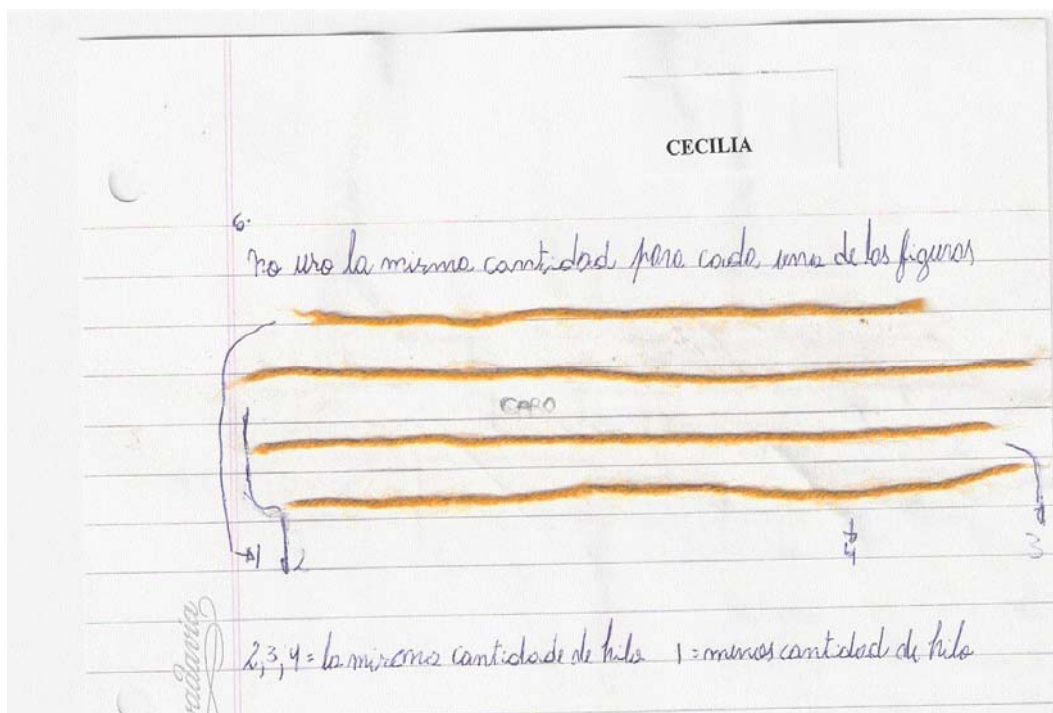 CECILIA
6.
no uso la misma cantidad para cada una de las figuras
CAPO
1 2 4 3
2,3,4 = la misma cantidad de hilo 1 = menos cantidad de hilo